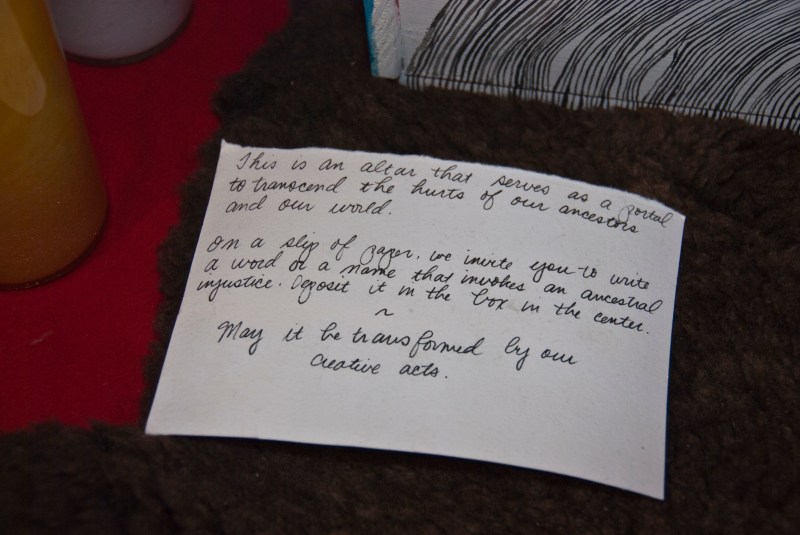 This is an altar that serves as a portal
to transcend the hurts of our ancestors
and our world.
On a slip of paper, we invite you to write
a word or a name that invokes an ancestral
injustice. Deposit it in the box in the center.
~
May it be transformed by our
creative acts.